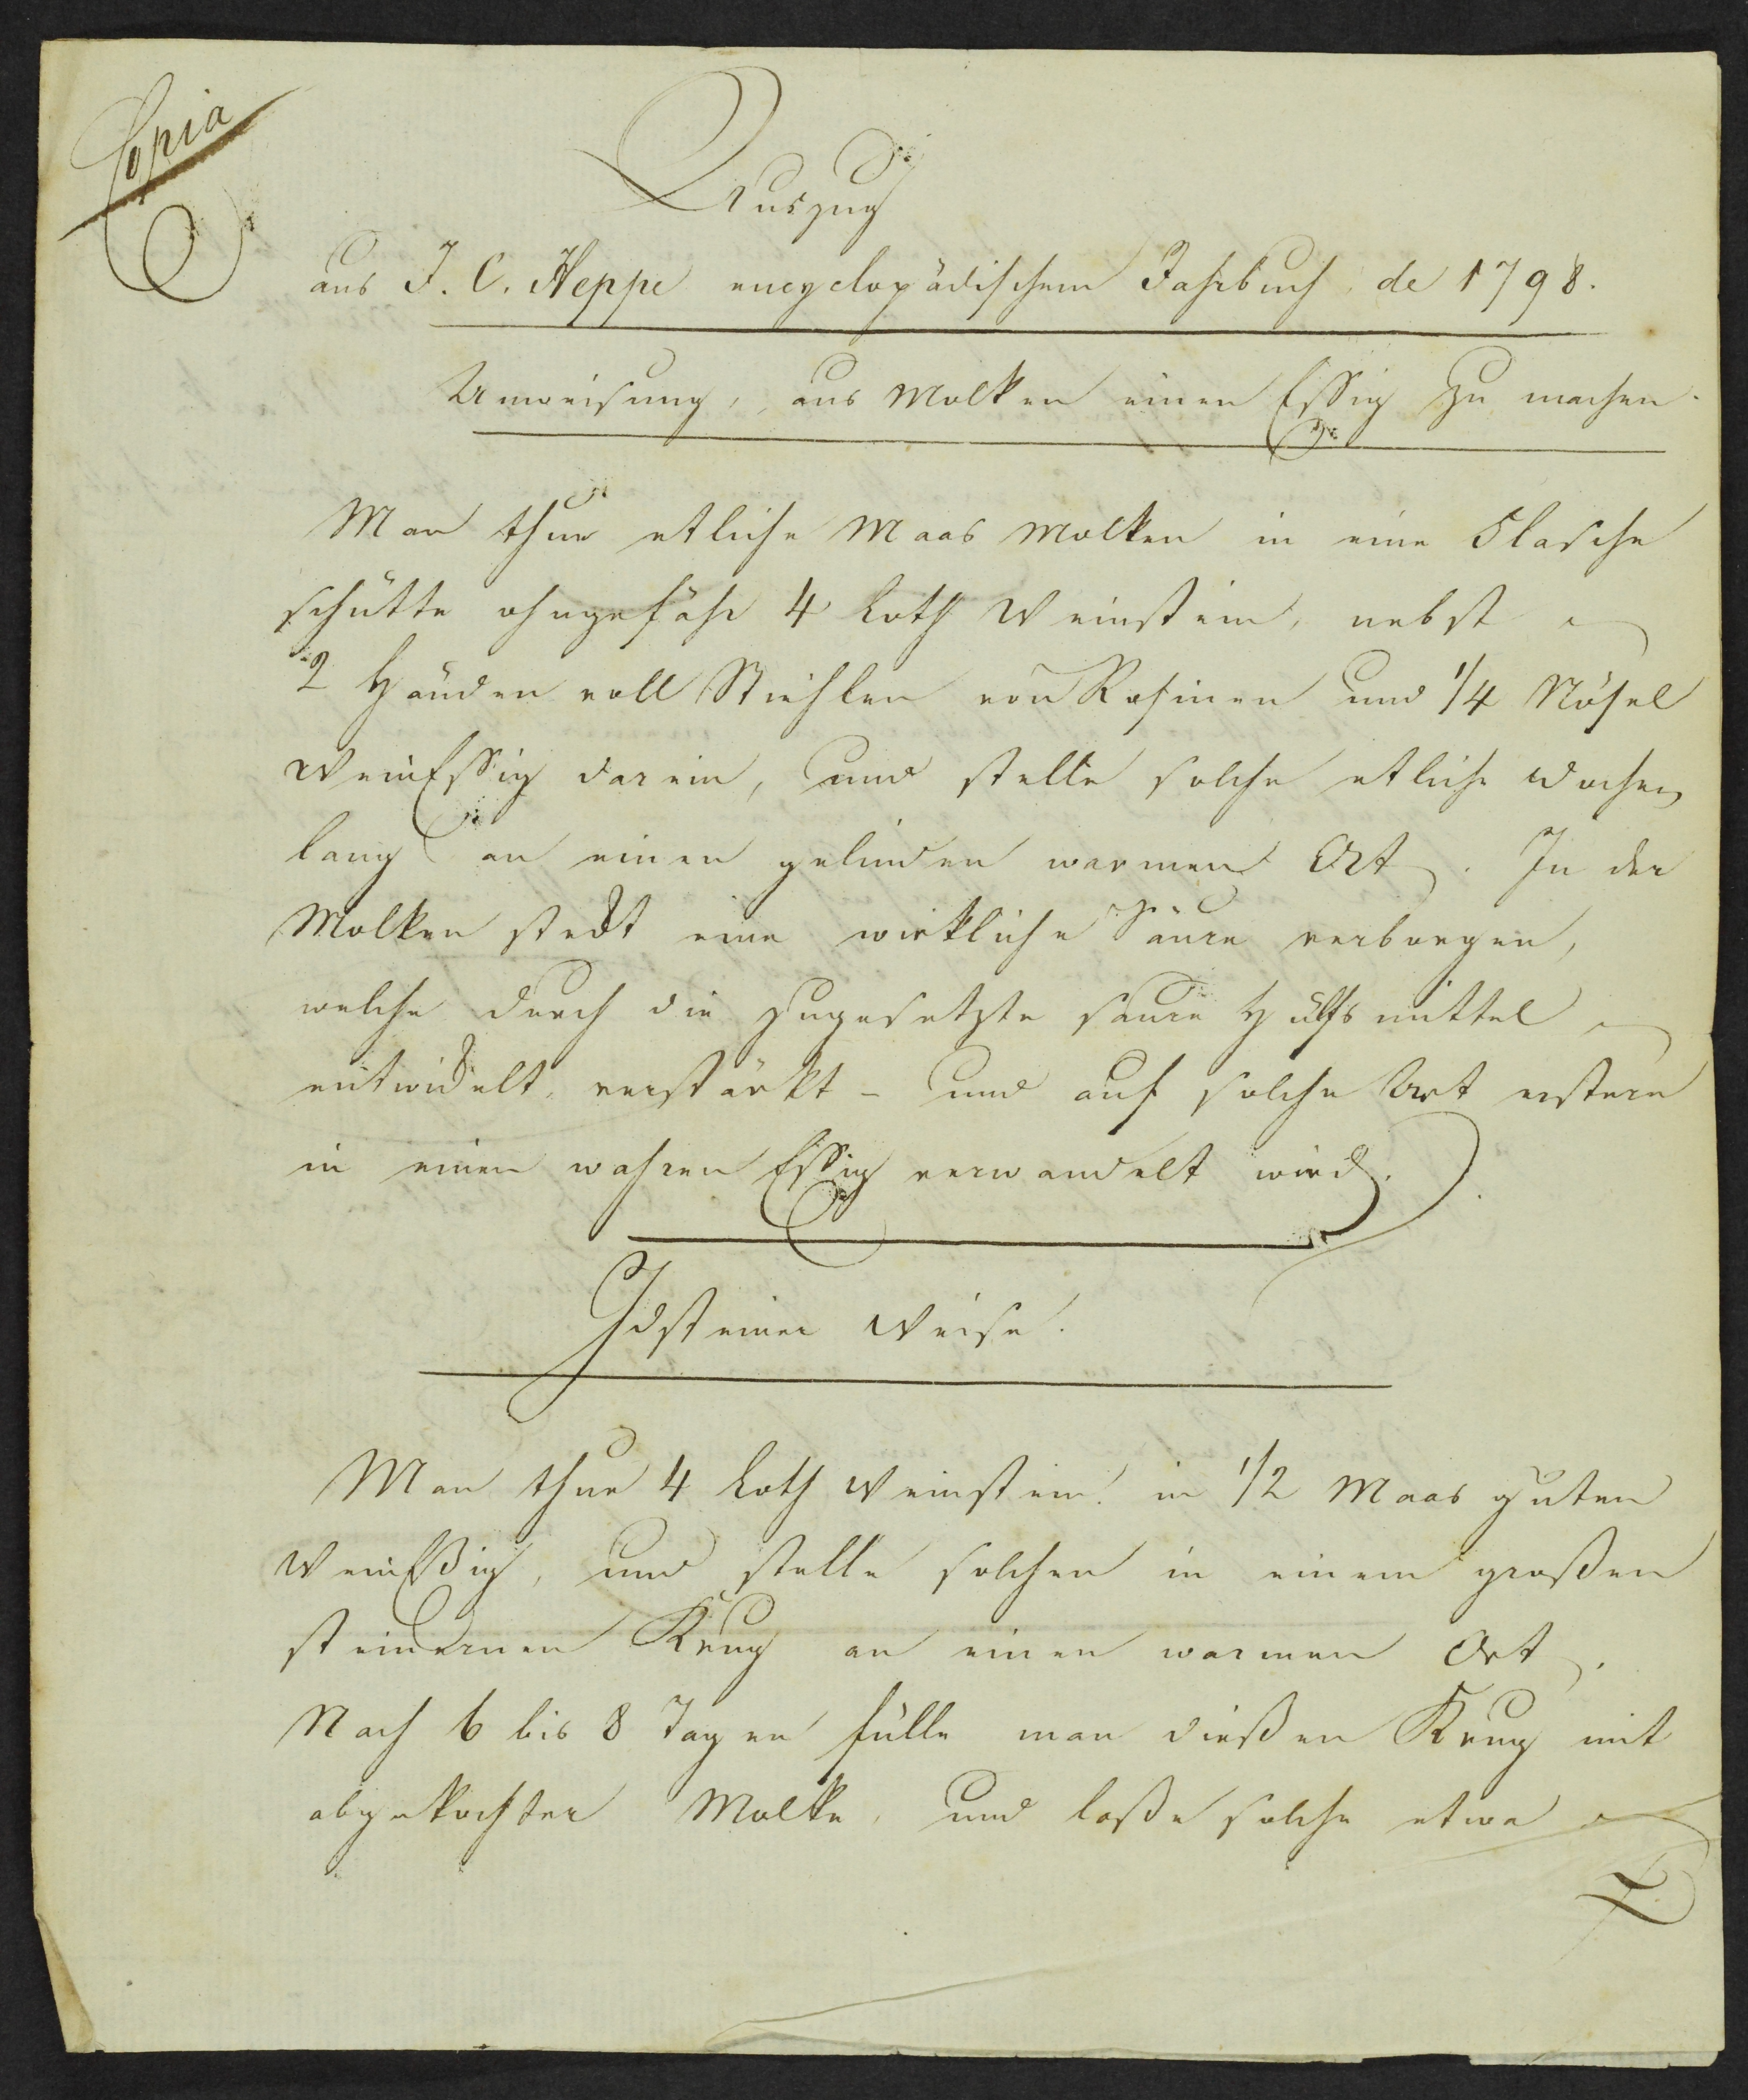 Copia
Auszug
aus J. C. Heppe encyclopädischem Jahrbuch de 1798.
Anweisung, aus Molken einen Essig zu machen.
Man thue etliche Maas Molken in eine Flasche
schütte ohngefähr 4 Loth Weinstein, nebst
2 Händen voll Stiehlen von Rosinen und 1/4 Nösel
WeinEssig darein, und stelle solche etliche Wochen
lang an einen gelinden warmen Ort. In der
Molken stekt eine wirkliche Säure verborgen,
welche durch die zugesetzte saure Hülfsmittel
entwickelt, verstärkt - und auf solche Art erstere
in einen wahren Essig verwandelt wird.
Idsteiner Weise.
Man thue 4 Loth Weinstein in 1/2 Maas guten
WeinEßig, und stelle solchen in einem großen
steinernen Krug an einen warmen Ort.
Nach 6 bis 8 Tagen fülle man dießen Krug mit
abgekochter Molke, und laße solche etwa